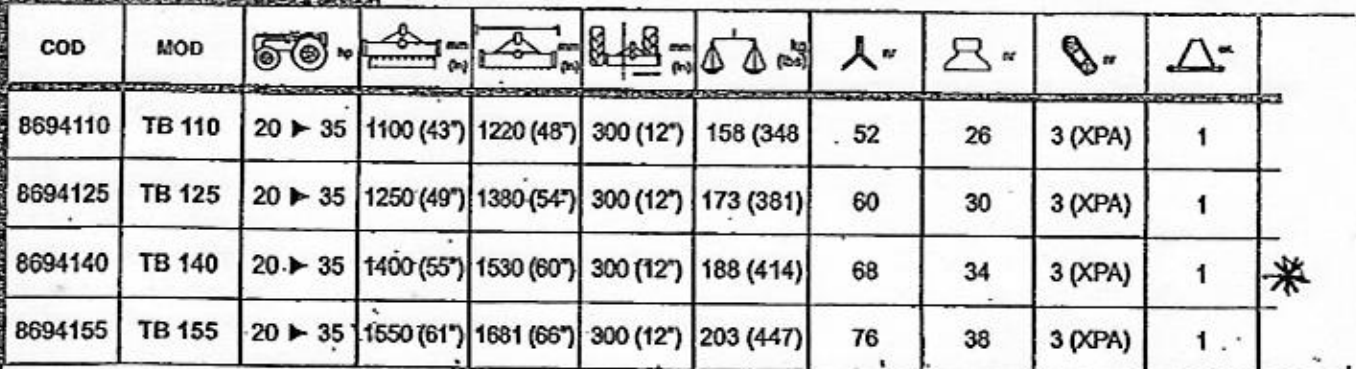 COD MOD hp mm (in) mm (in) mm (in) kg (lbs) nr nr nr cat.
8694110 TB 110 20 ► 35 1100 (43") 1220 (48") 300 (12") 158 (348 52 26 3 (XPA) 1
8694125 TB 125 20 ► 35 1250 (49") 1380 (54") 300 (12") 173 (381) 60 30 3 (XPA) 1
8694140 TB 140 20 ► 35 1400 (55") 1530 (60") 300 (12") 188 (414) 68 34 3 (XPA) 1
8694155 TB 155 20 ► 35 1550 (61") 1681 (66") 300 (12") 203 (447) 76 38 3 (XPA) 1